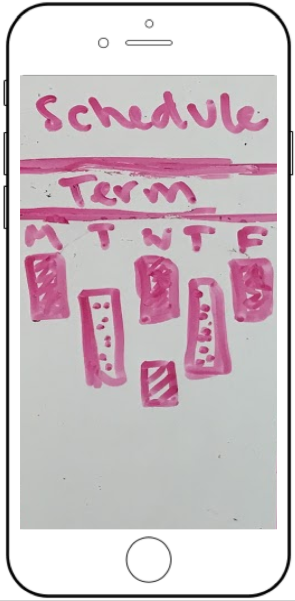 Schedule
Term
M T W T F